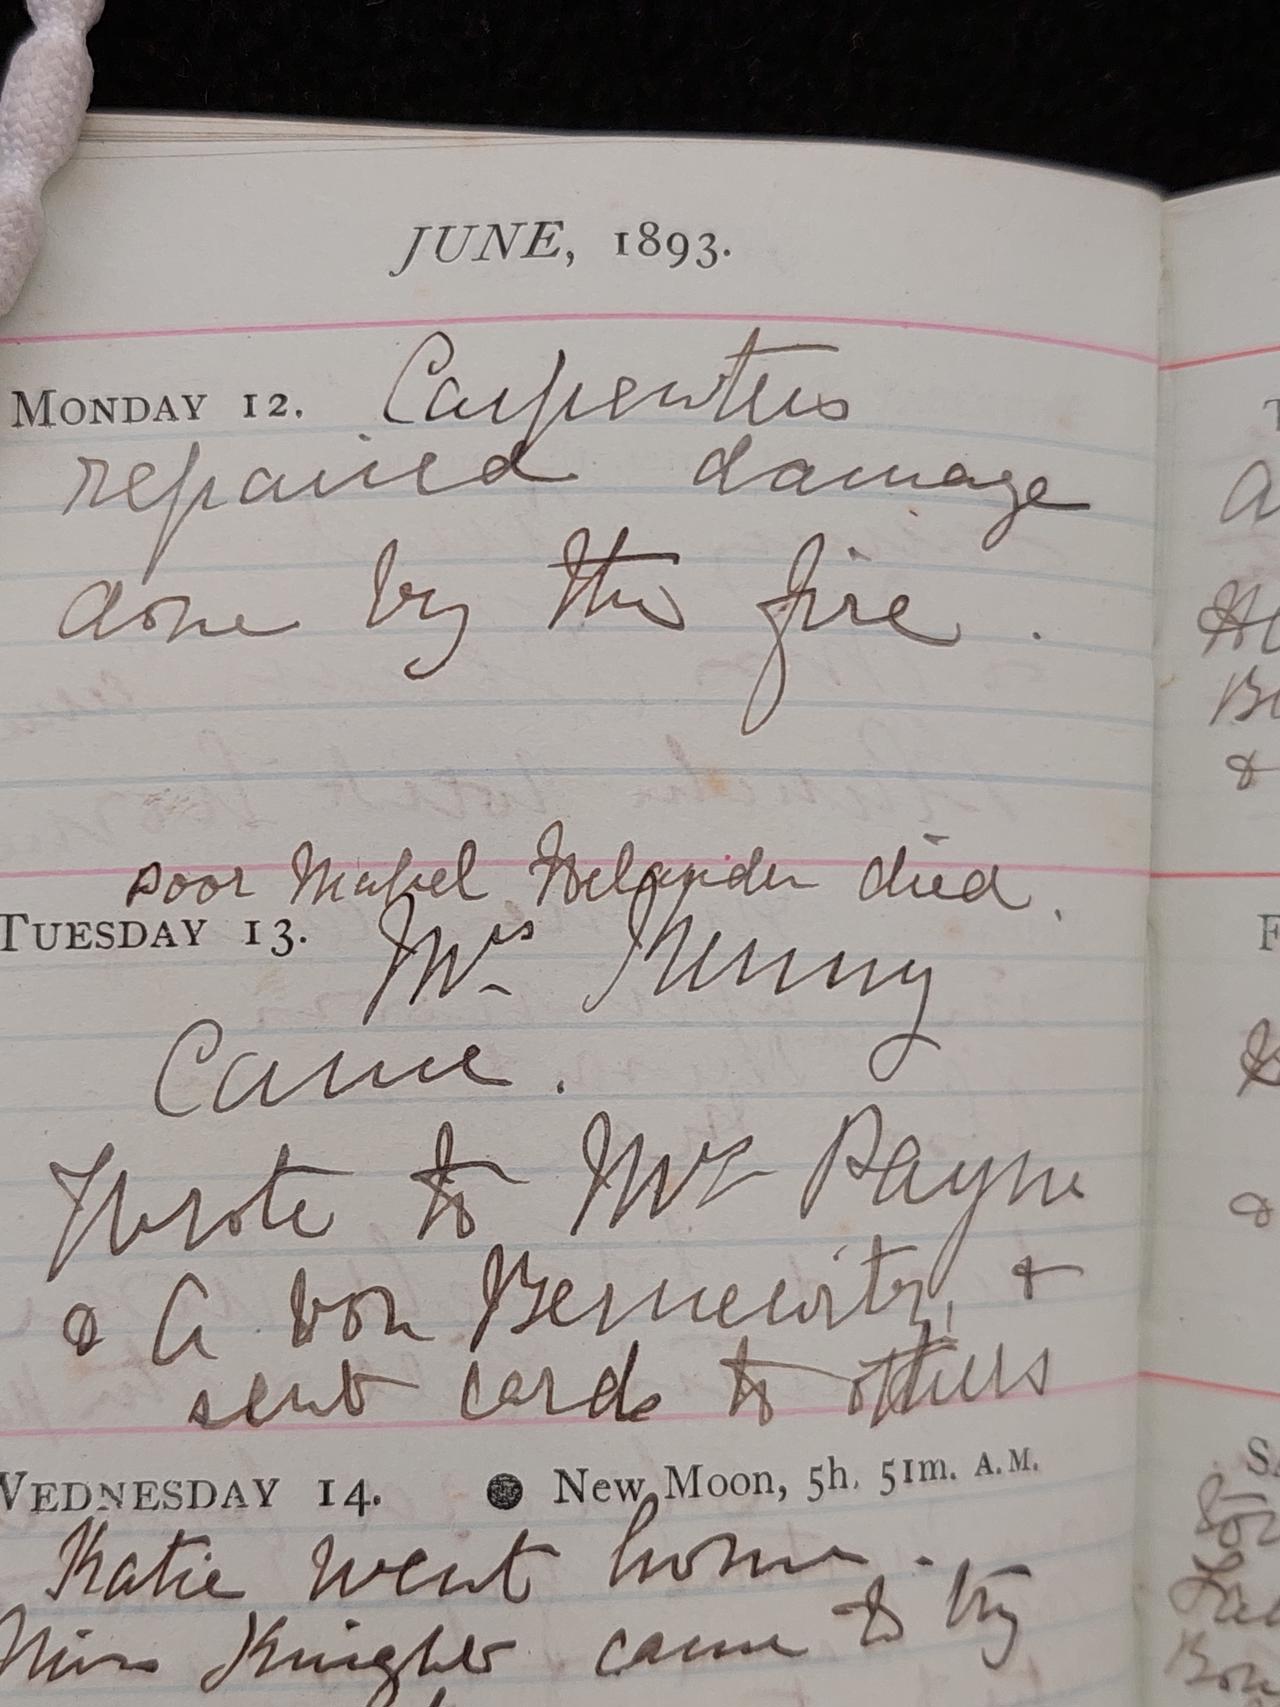 JUNE, 1893.
MONDAY 12. Carpenters
repaired damage
done by the fire.
poor Mabel died.
TUESDAY 13. Mrs Kenny
Came.
Wrote to Mrs Payne
& A von Bernewitz, &
sent cards to others
WEDNESDAY 14. ● New Moon, 5h. 51m. A.M.
Katie went home.
Miss Knight came to try